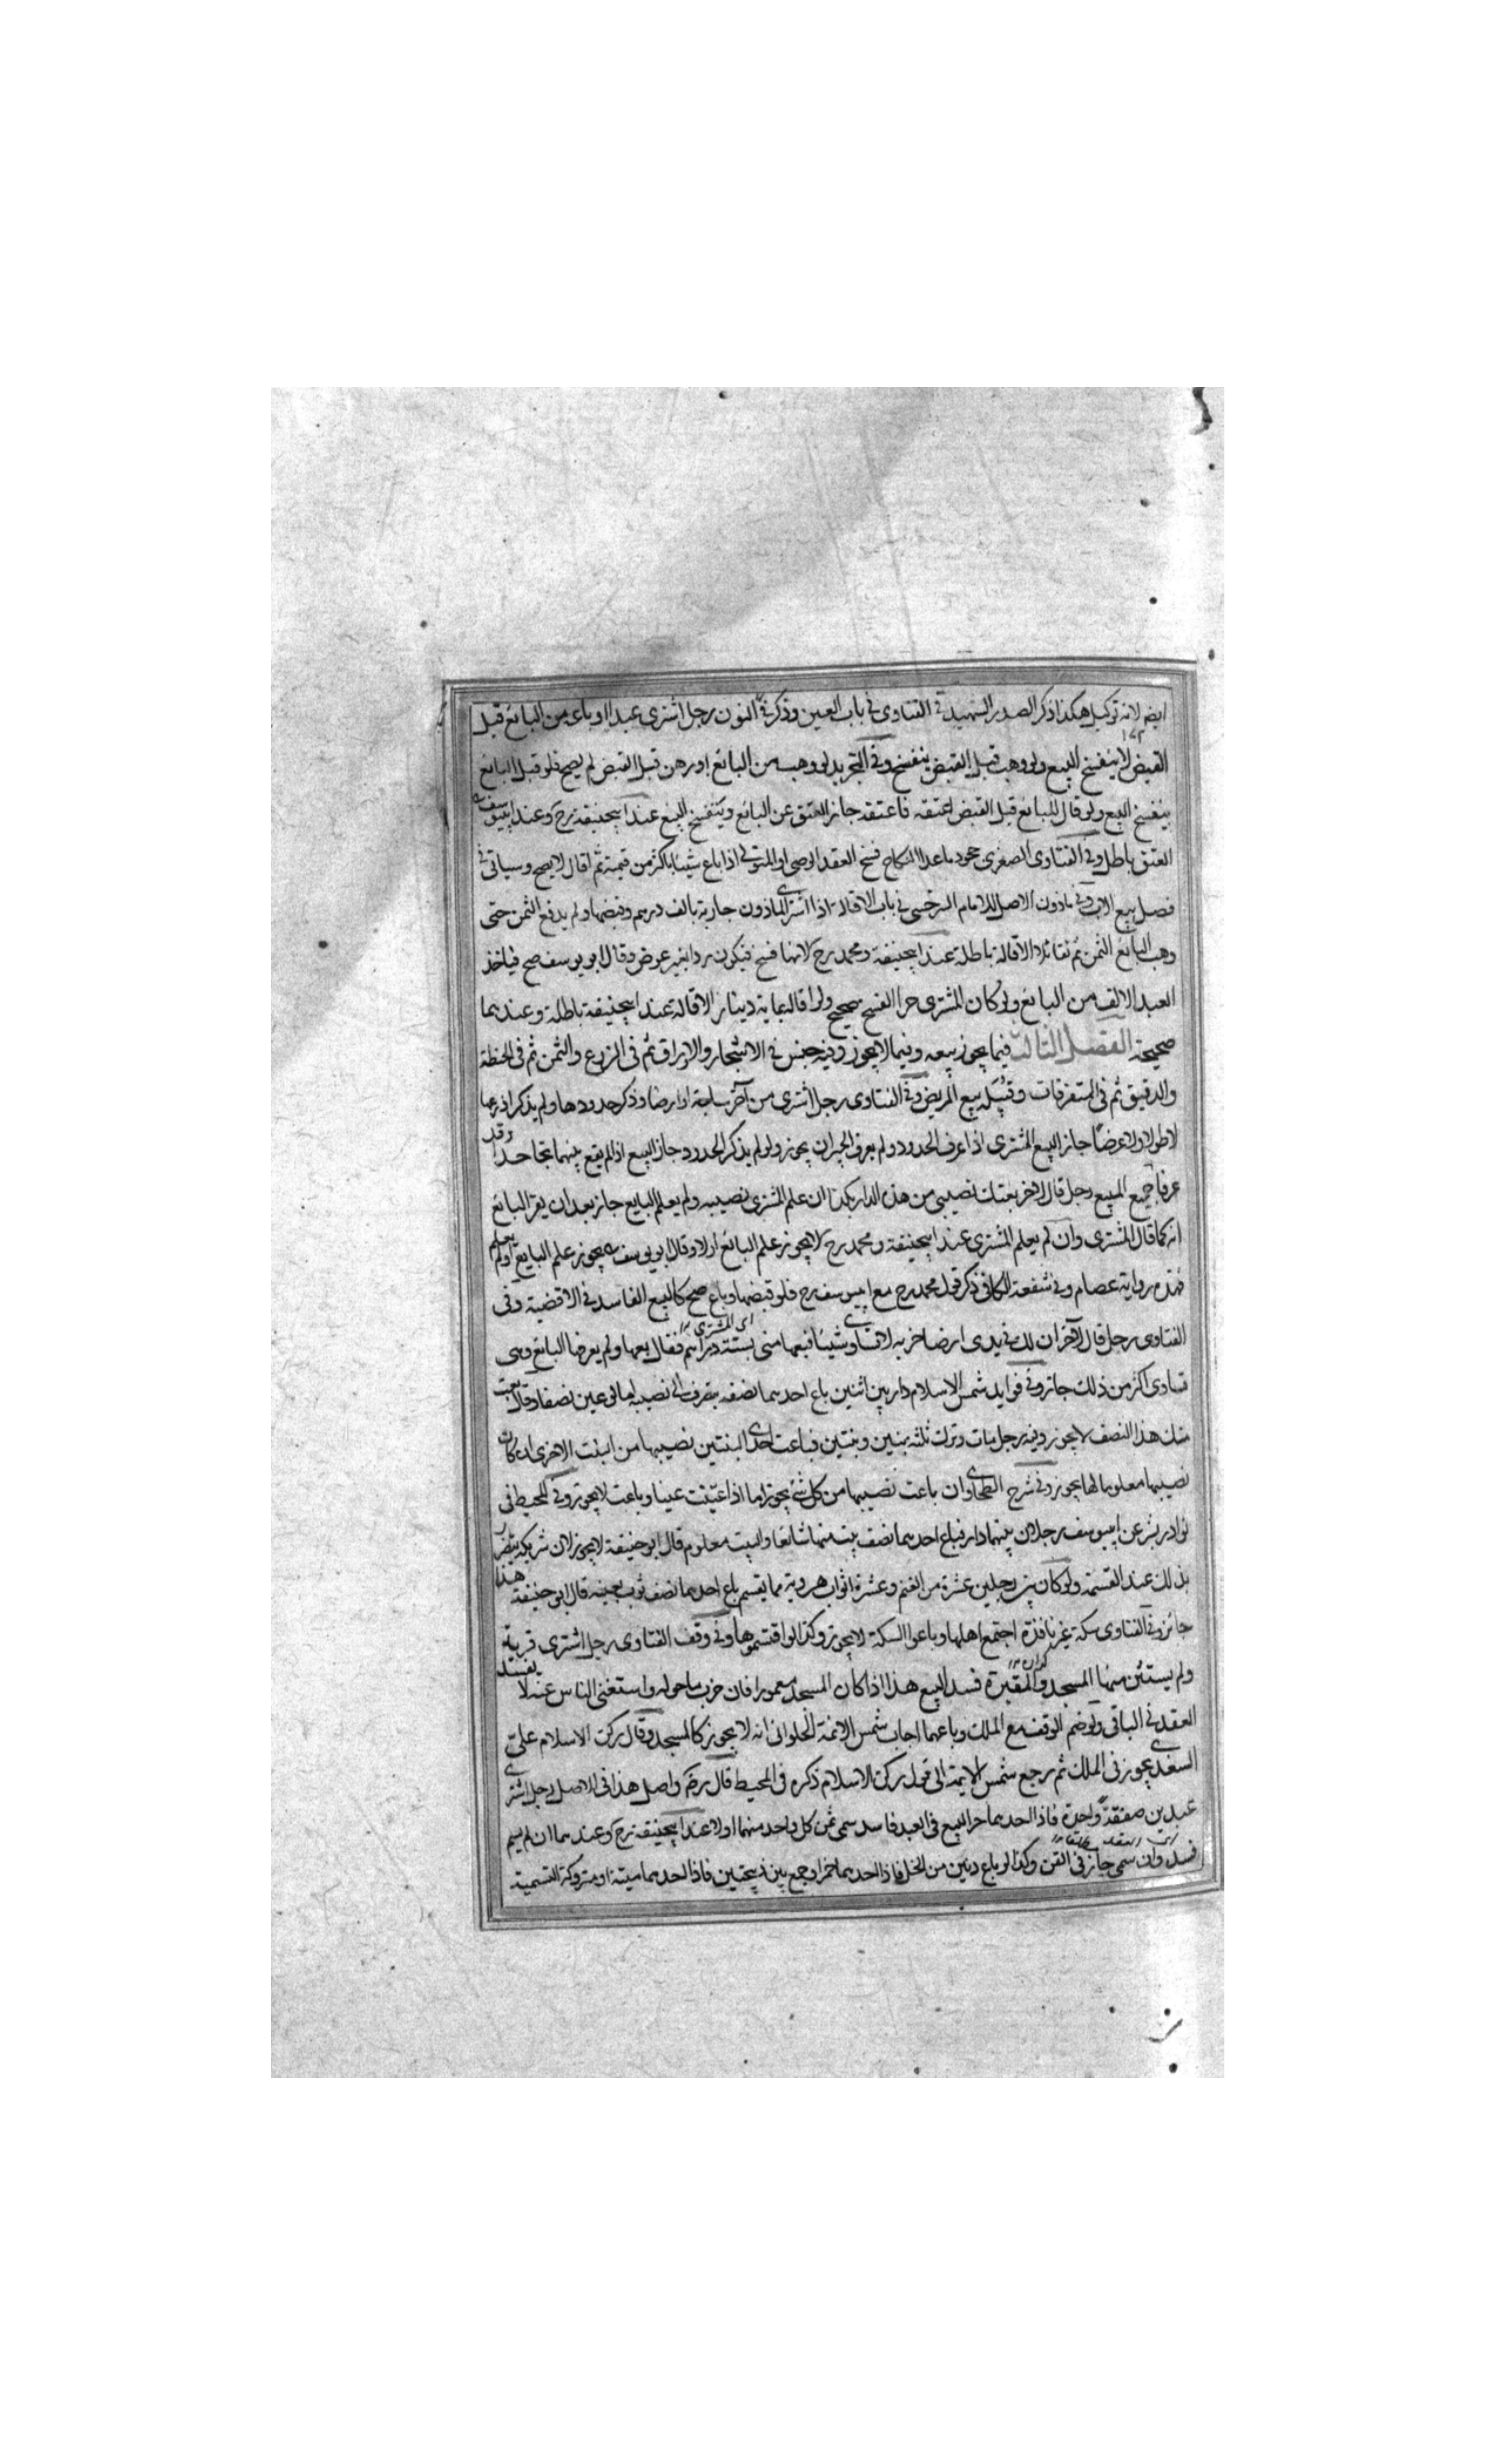 ايضا لانه توكيل هكذا ذكر الصدر الشهيد في الفتاوى في باب العين وذكر في النون رجل اشترى عبدا وباعه من البائع قبل
القبض لا ينفسخ البيع ولو وهب قبل القبض ينفسخ وفي التجريد لو وهبه من البائع او رهن قبل القبض لم يصح فلو قبل البائع
ينفسخ البيع ولو قال للبائع قبل القبض اعتقه فاعتقه جاز العتق عن البائع وينفسخ البيع عند ابيحنيفة رح وعند ابييوسف
العتق باطل وفي الفتاوى الصغرى جحود ما عدا النكاح فسخ العقد الوصي او المتولي اذا باع شيئا باكثر من قيمته ثم اقال لا يصح وسياتي في
فصل بيع الاب وفي ماذون الاصل للامام السرخسي في باب الاقالة اذا اشترى الماذون جارية بالف درهم وقبضها ولم يدفع الثمن حتى
وهب البائع الثمن ثم تقائلا الاقالة باطلة عند ابيحنيفة ومحمد رح لانها فسخ فيكون ردا بغير عوض وقال ابو يوسف صح فياخذ
العبد الالف من البائع ولو كان المشترى حرا الفسخ صحيح ولو اقاله بماية دينار الاقالة عند ابيحنيفة باطلة وعندهما
صحيحة الفصل الثالث فيما يجوز بيعه وفيما لا يجوز وفيه جنس في الاشجار والاوراق ثم في الزرع والثمن ثم في الحنطة
والدقيق ثم في المتفرقات وقبيله بيع المريض وفي الفتاوى رجل اشترى من آخر ساحة او ارضا وذكر حدودها ولم يذكر اذرعها
لا طولا ولا عرضا جاز البيع المشترى اذا عرف الحدود ولم يعرف الجيران يجوز ولو لم يذكر الحدود جاز البيع اذا لم يقع بينهما تجاحد وقد
عرفا جميع المبيع رجل قال لاخر بعتك نصيبي من هذه الدار بكذا ان علم المشترى نصيبه ولم يعلم البايع جاز بعد ان يقر البائع
انه كما قال المشترى وان لم يعلم المشترى عند ابيحنيفة ومحمد رح لا يجوز علم البائع او لا وقال ابو يوسف يجوز علم البايع او لم يعلم
فهذه رواية عصام وفي شفعة الكافي ذكر قول محمد رح مع ابييوسف رح فلو قبضها وباع صح كالبيع الفاسد في الاقضية وفي
الفتاوى رجل قال لآخر ان لك في يدي ارضا خربة لا تساوي شيئا فبعها مني بستة دراهم فقال بعها ولم يعرفها البائع وهي
تساوي اكثر من ذلك جاز وفي فوايد شمس الاسلام دار بين اثنين باع احدهما نصفه يصرف الى نصيبه اما لو عين نصفا وقال بعت
منك هذا النصف لا يجوز وفيه رجل مات وترك ثلثه بنين وبنتين فباعت احدى البنتين نصيبها من البنت الاخرى ان كان
نصيبها معلوما لها يجوز وفي شرح الطحاوي وان باعت نصيبها من كل شئ يجوز اما اذا عينت عينا وباعت لا يجوز وفي المحيط في
نوادر بشر عن ابييوسف رجلان بينهما دار فباع احدهما نصف بيت منها شائعا والبيت معلوم قال ابو حنيفة لا يجوز لان شريكه يتضرر
بذلك عند القسمة ولو كان بين رجلين عشرة من الغنم وعشرة اثواب هروية مما يقسم باع احدهما نصف ثوب بعينه قال ابو حنيفة هذا
جائز وفي الفتاوى سكة غير نافذة اجتمع اهلها وباعوا السكة لا يجوز وكذا لو اقتسموها وفي وقف الفتاوى رجل اشترى قرية
ولم يستثن منها المسجد والمقبرة فسد البيع هذا اذا كان المسجد معمورا فان خرب ما حوله واستغنى الناس عنه لا يفسد
العقد في الباقي ولو ضم الوقف مع الملك وباعهما اجاب شمس الائمة الحلواني انه لا يجوز كالمسجد وقال ركن الاسلام علي
السغدي يجوز في الملك ثم رجع شمس الايمة الى قول ركن الاسلام ذكره في المحيط قال رضه واصل هذا في الاصل رجل اشترى
عبدين صفقة واحدة فاذا احدهما حر البيع في العبد فاسد سمى ثمن كل واحد منهما او لا عند ابيحنيفة رح وعندهما ان لم يسم
فسد وان سمى جاز في القن وكذا لو باع دنين من الخل فاذا احدهما خمر او جمع بين ذبيحتين فاذا احدهما ميتة او متروكة التسمية